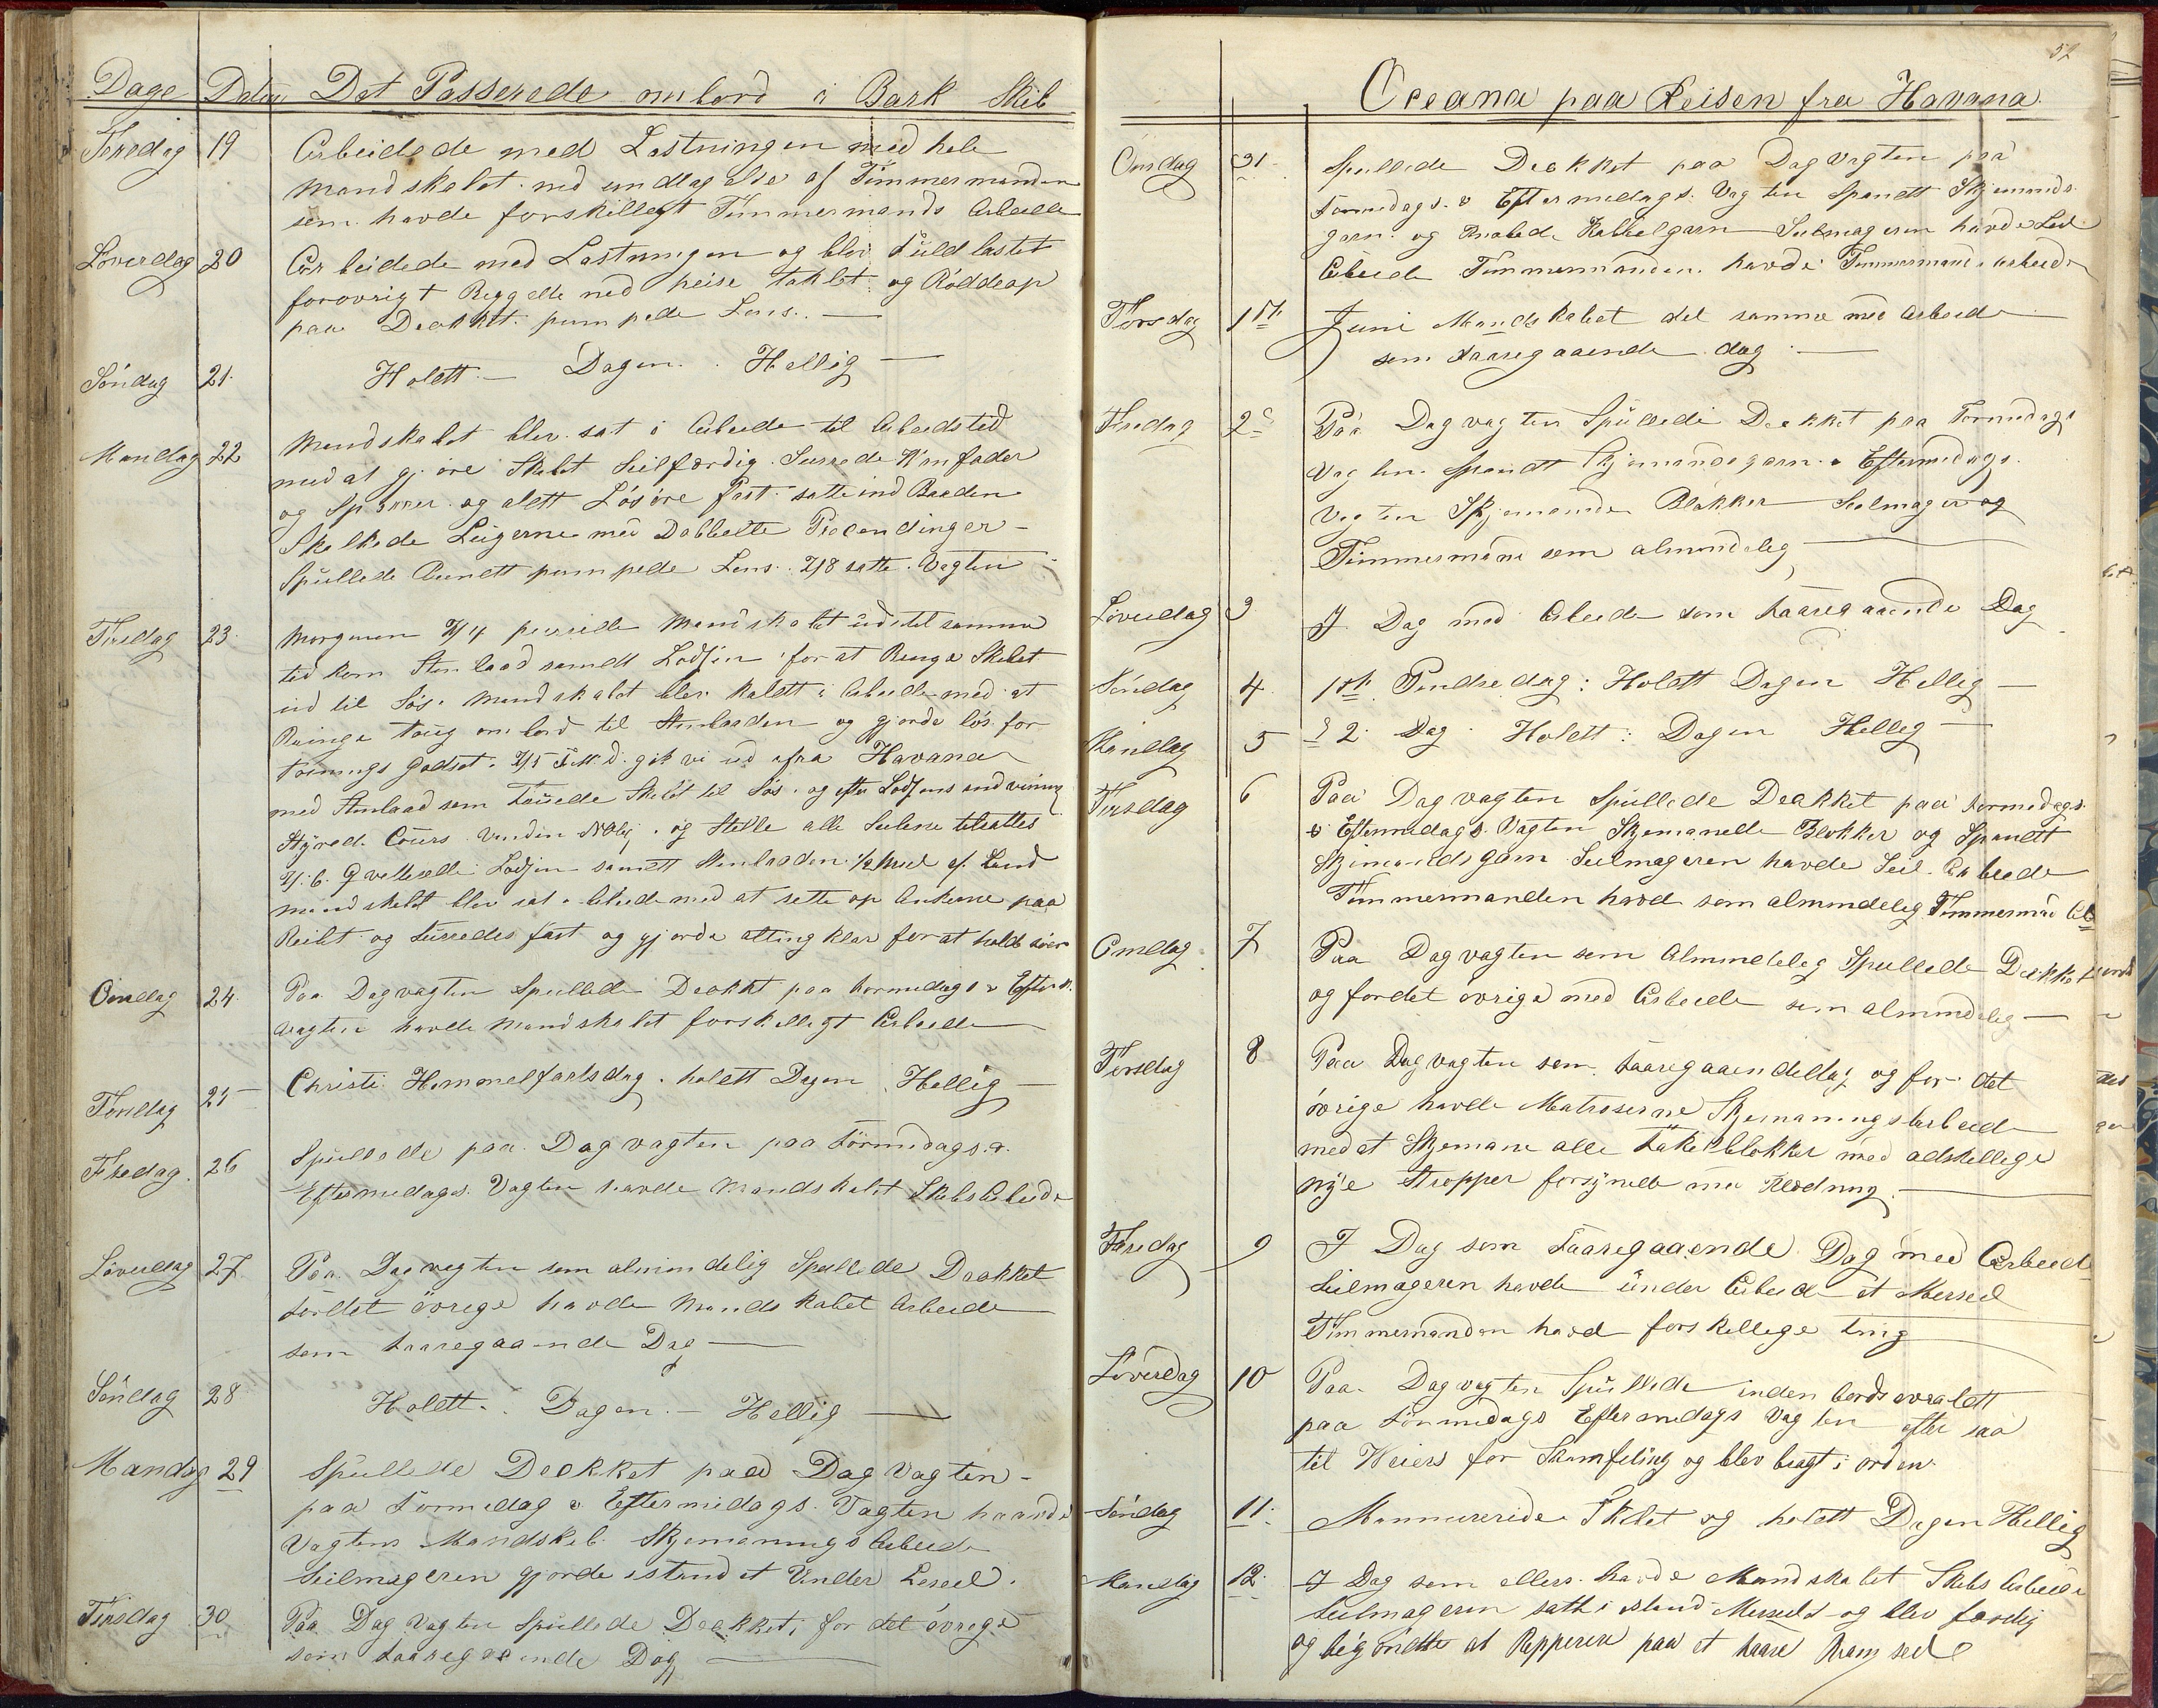 Dage Datum Det Passerede om bord i Bark Skib
Fredag 19 Arbeidede med Lastningen med hele
Mandskabet med undtagelse af Timmermanden
som havde forskilligt Timmermands Arbeide
Löverdag 20 Arbeidede med Lastningen og blev fuld lastet
forøvrigt Riggede ned heise taklet og Röddeop
paa Dækket pumpede Lens. —
Søndag 21. Holdtt — Dagen. Hellig —
Mandag 22 Mandskabet blev sat i Arbeide til Arbeidstid
med at gjøre Skibet Seilfærdig. Surrede Vanfader
og Sparrer og altt Løsøre fast satte ind Baaden
Skalkede Lugerne med Dobbelte Precendinger —
Spullede Rundtt pumpede Lens. 2/8 satte Vagten
Tirsdag 23. Morgenen 4 purrede Mandskabet ud til samme
tid kom Stimbaad samtt Lodsen for at Bringe Skibet
ud til Søs. Mandskabet blev kaldtt i Arbeide med at
Bringe Toug om bord til Stimbaaden og gjorde løs for
tøinings Godset. 5 F.M.d. gik vi ud ifra Havana
med Stimbaad som touede Skibet til Søs. og efter Lodsens andvisning
Styred. Cours Vinden NOlig. og Stelle alle Seilene tilsattes
6. Qvitterede Lodsen samtt Stimbaaden 1/2 Mil af Land
Mandskabet blev sat i Arbeide med at sette op Ankerne paa
Reilet og surredes fast og gjorde alting klar for at holde søen
Onsdag 24 Paa Dagvagten Spullede Dækket paa formedags & Efterm.
vagten havde Mandskabet forskelligt Arbeide
Torsdag 25 — Christi Himmelfartsdag. holdtt Dagen Hellig —
Fredag. 26 Spullede paa Dagvagten paa formidags. &
Eftermedags Vagten havde Mandskabet Skibs Arbeide
Löverdag 27 Paa Dagvagten som almindelig Spullede Dækket
fordet øvrige havde Mandskabet Arbeide
som faaregaaende Dag —
Søndag 28 Holdtt. Dagen. — Hellig —
Mandag 29 Spullede Dækket paa Dag Vagten —
paa Formidag & Eftermidags. Vagten havde
Vagtens Mandskab Skjemannings Arbeide
Seilmageren gjorde istand et Under Leseil.
Tirsdag 30 Paa Dag Vagten Spullede Dækket, for det øvrige
som faaregaaende Dag —
52
Oceana paa Reisen fra Havana.
Onsdag 31. Spullede Dækket paa Dagvagten paa
Formedags. & Eftermedags Vagten Spandt Skjemands
garn og Kabelgarn Seilmageren havde Seil
Arbeide Timmermanden havde Timmermands Arbeide
Torsdag 1st Juni Mandskabet det samme med Arbeide
som faaregaaende dag —
Fredag 2d Paa Dagvagten Spullede Dækket paa Formedags
Vagten Spandt Skjemandsgarn & Eftermedags
Vagten Skjemande Blokker Seilmager og
Timmermand som almindelig —
Löverdag 3 I Dag med Arbeide som faaregaaende Dag
Søndag 4. 1st Pindsedag: Holdtt Dagen Hellig —
Mandag 5 2. Dag Holdtt: Dagen Hellig —
Tirsdag 6 Paa Dagvagten Spullede Dækket paa formedags
& Eftermedags. Vagten Skjemande Blokker og Spandtt
Skjemandsgarn Seilmageren havde Seil Arbeide
Timmermanden havd som almindelig Timmermand Arb
Onsdag 7 Paa Dagvagten som Almindelig Spullede Dækket
og fordet øvrige med Arbeide som almindelig —
Torsdag 8 Paa Dagvagten som faaregaaendedag og for det
øvrige havde Matroserne Skjemanings Arbeide
med at Skjemane alle Takelblokker med adskellige
nye Stropper forsynede med Klædning. —
Fredag 9 I Dag som Faaregaaende Dag med Arbeid
Seilmageren havde under Arbeid et Merseil
Timmermanden havd forskellige ting —
Löverdag 10 Paa Dagvagten Spullede inden bords overaldtt
paa Formedags Eftermedags Vagten efter saa
til Veiers for Skamfiling og blev bragt i orden.
Søndag 11. Mannuerede Skibet og holdtt Dagen Hellig
Mandag 12. I Dag som ellers havde Mandskabet Skibs Arbeide
Seilmageren satte i stand Merseilet og blev færdig
og begyndte at Repperere paa et faare Bram seil